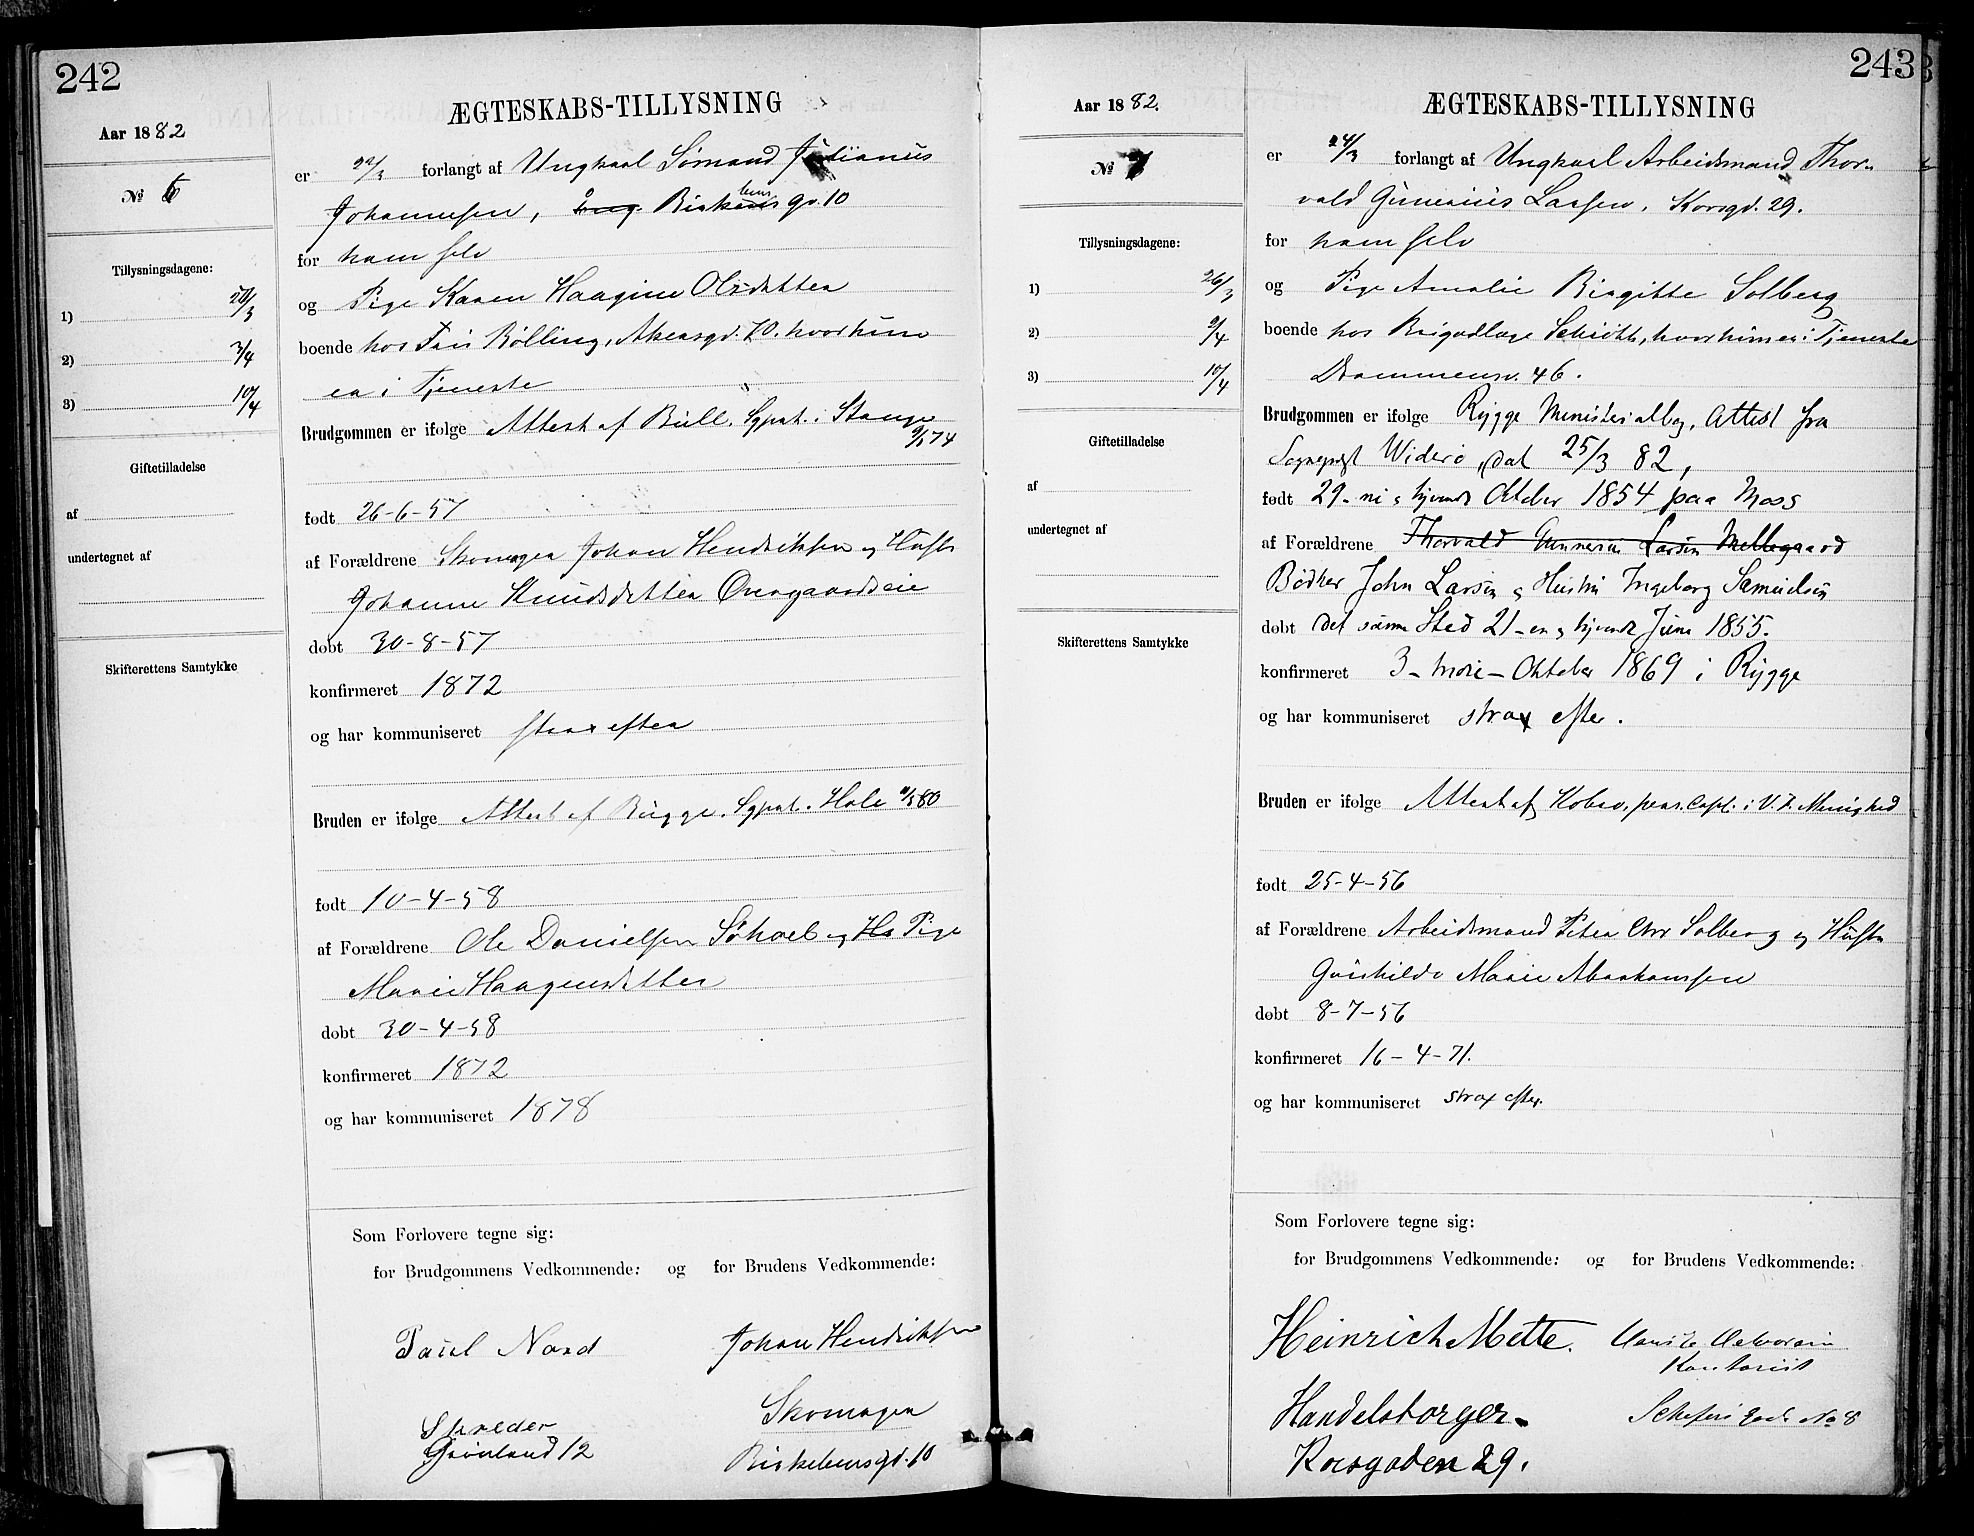 242
Aar 1882
ÆGTESKABS-TILLYSNING
№ 6
er 22/3 forlangt af Ungkarl Sømand Julianus
Johannesen, Birkebensgd. 10
for ham selv
Tillysningsdagene:
og Pige Karen Haagine Olsdatter
1)
boende hos Frü Rølling, Akersgd. 70. hvor hün
2) 3/4
er i Tjeneste
3) 10/4
Brudgommen er ifølge Attest af Büll. Sgprst. i Stange
Giftetilladelse
født 26-6-57
af
af Forældrene Skomager Johan Hendriksen og Hüstr
undertegnet af
Johanne Knudsdatter Overgaardseie
døbt 30-8-57
Skifterettens Samtykke
konfirmeret 1872
og har kommuniseret strax efter
Bruden er ifølge Attest af Bügge. Sgprst. Hole
født 10-4-58
af Forældrene Ole Danielsen Søhoel og Hs Pige
Marie Haagensdatter
døbt 30-4-58
konfirmeret 1872
og har kommuniseret 1878
Som Forlovere tegne sig:
for Brudgommens Vedkommende: og for Brudens Vedkommende:
Paul Nord Johan Hendriksen
Skræder Skomager
Grønland 12 Birkebensgd. 10
243
Aar 1882.
ÆGTESKABS-TILLYSNING
№ 7
er 24/3 forlangt af Ungkarl Arbeidsmand Thor-
vald Günerius Larsen, Korsgd. 29.
for ham selv
Tillysningsdagene:
og Pige Amalie Birgitte Solberg
1) 26/3
boende hos Brigadlæge Schiøtt, hvor hün er i Tjeneste
2)
Drammensv. 46.
3) 10/4
Brudgommen er ifølge Rygge Ministerialbog, Attest fra
Giftetilladelse
Sogneprest Widerø, dat 25/3 82,
af
født 29- ni og tyvende Oktober 1854 paa Moss
undertegnet af
af Forældrene Thorvald Gunnerius Larsen Mellegaard
Bødker John Larsen og Hustru Ingeborg Samuelsen
døbt det samme Sted 21- en og tyvende Juni 1855.
Skifterettens Samtykke
konfirmeret 3- tredie- Oktober 1869 i Rygge
og har kommuniseret strax efter.
Bruden er ifølge Attest af Kobro, pers. Capl. i V. F. Menighed
født 25-4-56
af Forældrene Arbeidsmand Peter Chr Solberg og Hüstr
Günhilde Marie Abrahamsen
døbt 8-7-56
konfirmeret 16-4-71.
og har kommuniseret strax efter.
Som Forlovere tegne sig:
for Brudgommens Vedkommende: og for Brudens Vedkommende:
Heinrich Mette.
Kontorist
Handelsborger
No 8
Korsgaden 29.